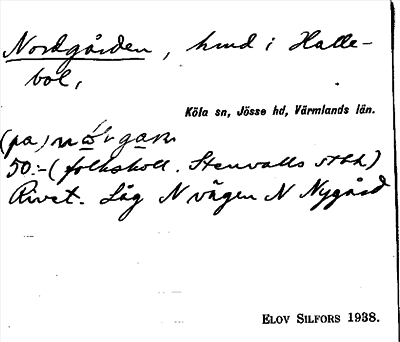 Nordgården, hmd i Halle-
bol,
Köla sn, Jösse hd, Värmlands län.
(pa)
50:- (folkskoll. Stenvalls stbh)
Rivet. Låg N vägen N Nygård
ELOV SILFORS 1938.